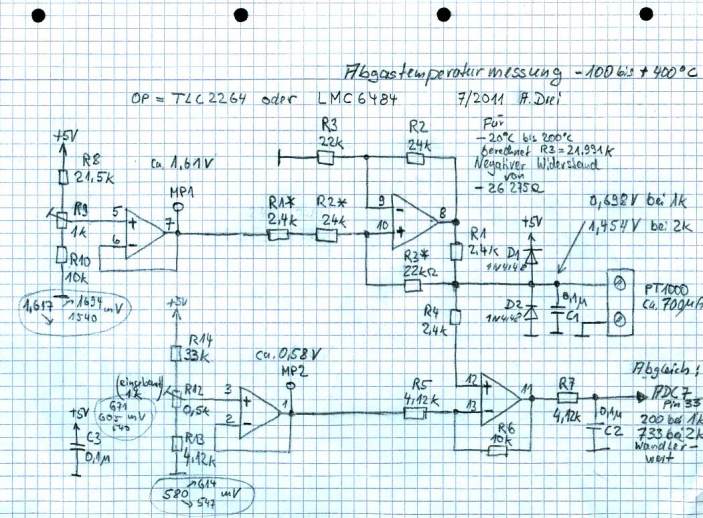 Abgastemperaturmessung -100 bis +400°C
OP = TLC2264 oder LMC6484 7/2011 A. Drei
Für
-20°C bis 200°C
berechnet R3=21,991k
Negativer Widerstand
von
-26 275Ω
+5V
R8
21,5k
R9
1k
R10
10k
1,617
1694 mV
1540
ca. 1,61V
MP1
5
6
7
+
-
R1*
2,4k
R2*
24k
R3
22k
R2
24k
9
10
8
-
+
R3*
22kΩ
R1
2,4k
R4
2,4k
+5V
D1
1N4148
D2
1N4148
0,1µ
C1
0,698V bei 1k
1,454V bei 2k
PT1000
ca. 700µA
+5V
R14
33k
(eingebaut)
1k
R12
0,5k
671
605 mV
540
R13
4,12k
580
614 mV
547
+5V
C3
0,1µ
ca. 0,58V
MP2
3
2
1
+
-
R5
4,12k
12
13
11
+
-
R6
10k
R7
4,12k
0,1µ
C2
Abgleich:
ADC7
Pin 33
200 bei 1k
733 bei 2k
Wandler-
wert